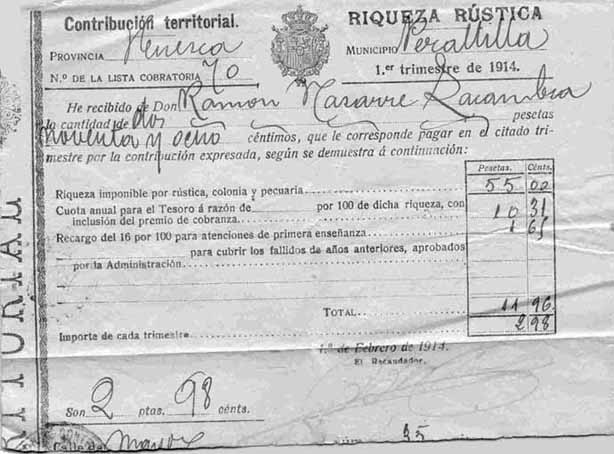 Contribución territorial.
RIQUEZA RÚSTICA
PROVINCIA Huesca
MUNICIPIO Peraltilla
N.º DE LA LISTA COBRATORIA 70
1.er trimestre de 1914.
He recibido de Don Ramón Nasarre Lacambra
la cantidad de dos pesetas
noventa y ocho céntimos, que le corresponde pagar en el citado tri-
mestre por la contribución expresada, según se demuestra á continuación:
Pesetas. Cénts.
Riqueza imponible por rústica, colonia y pecuaria 55 00
Cuota anual para el Tesoro á razón de por 100 de dicha riqueza, con
inclusión del premio de cobranza. 10 31
Recargo del 16 por 100 para atenciones de primera enseñanza 1 65
para cubrir los fallidos de años anteriores, aprobados
por la Administración
TOTAL 11 96
Importe de cada trimestre 2 98
1.º de Febrero de 1914.
El Recaudador.
Son 2 ptas. 98 cénts.
Calle de
35